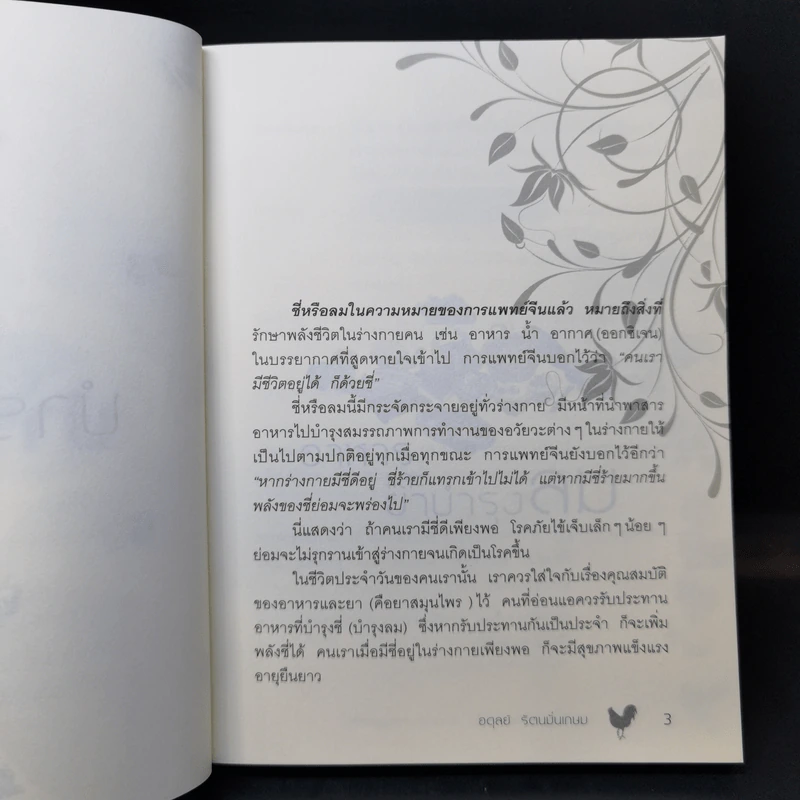 ชี่หรือลมในความหมายของการแพทย์จีนแล้ว หมายถึงสิ่งที่
รักษาพลังชีวิตในร่างกายคน เช่น อาหาร น้ำ อากาศ (ออกซิเจน)
ในบรรยากาศที่สูดหายใจเข้าไป การแพทย์จีนบอกไว้ว่า “คนเรา
มีชีวิตอยู่ได้ ก็ด้วยชี่”
ชี่หรือลมนี้มีกระจัดกระจายอยู่ทั่วร่างกาย มีหน้าที่นำพาสาร
อาหารไปบำรุงสมรรถภาพการทำงานของอวัยวะต่าง ๆ ในร่างกายให้
เป็นไปตามปกติอยู่ทุกเมื่อทุกขณะ การแพทย์จีนยังบอกไว้อีกว่า
“หากร่างกายมีชี่ดีอยู่ ชี่ร้ายก็แทรกเข้าไปไม่ได้ แต่หากมีชี่ร้ายมากขึ้น
พลังของชี่ย่อมจะพร่องไป”
นี่แสดงว่า ถ้าคนเรามีชี่ดีเพียงพอ โรคภัยไข้เจ็บเล็ก ๆ น้อย ๆ
ย่อมจะไม่รุกรานเข้าสู่ร่างกายจนเกิดเป็นโรคขึ้น
ในชีวิตประจำวันของคนเรานั้น เราควรใส่ใจกับเรื่องคุณสมบัติ
ของอาหารและยา (คือยาสมุนไพร ) ไว้ คนที่อ่อนแอควรรับประทาน
อาหารที่บำรุงชี่ (บำรุงลม) ซึ่งหากรับประทานกันเป็นประจำ ก็จะเพิ่ม
พลังชี่ได้ คนเราเมื่อมีชี่อยู่ในร่างกายเพียงพอ ก็จะมีสุขภาพแข็งแรง
อายุยืนยาว
อดุลย์ รัตนมั่นเกษม 3